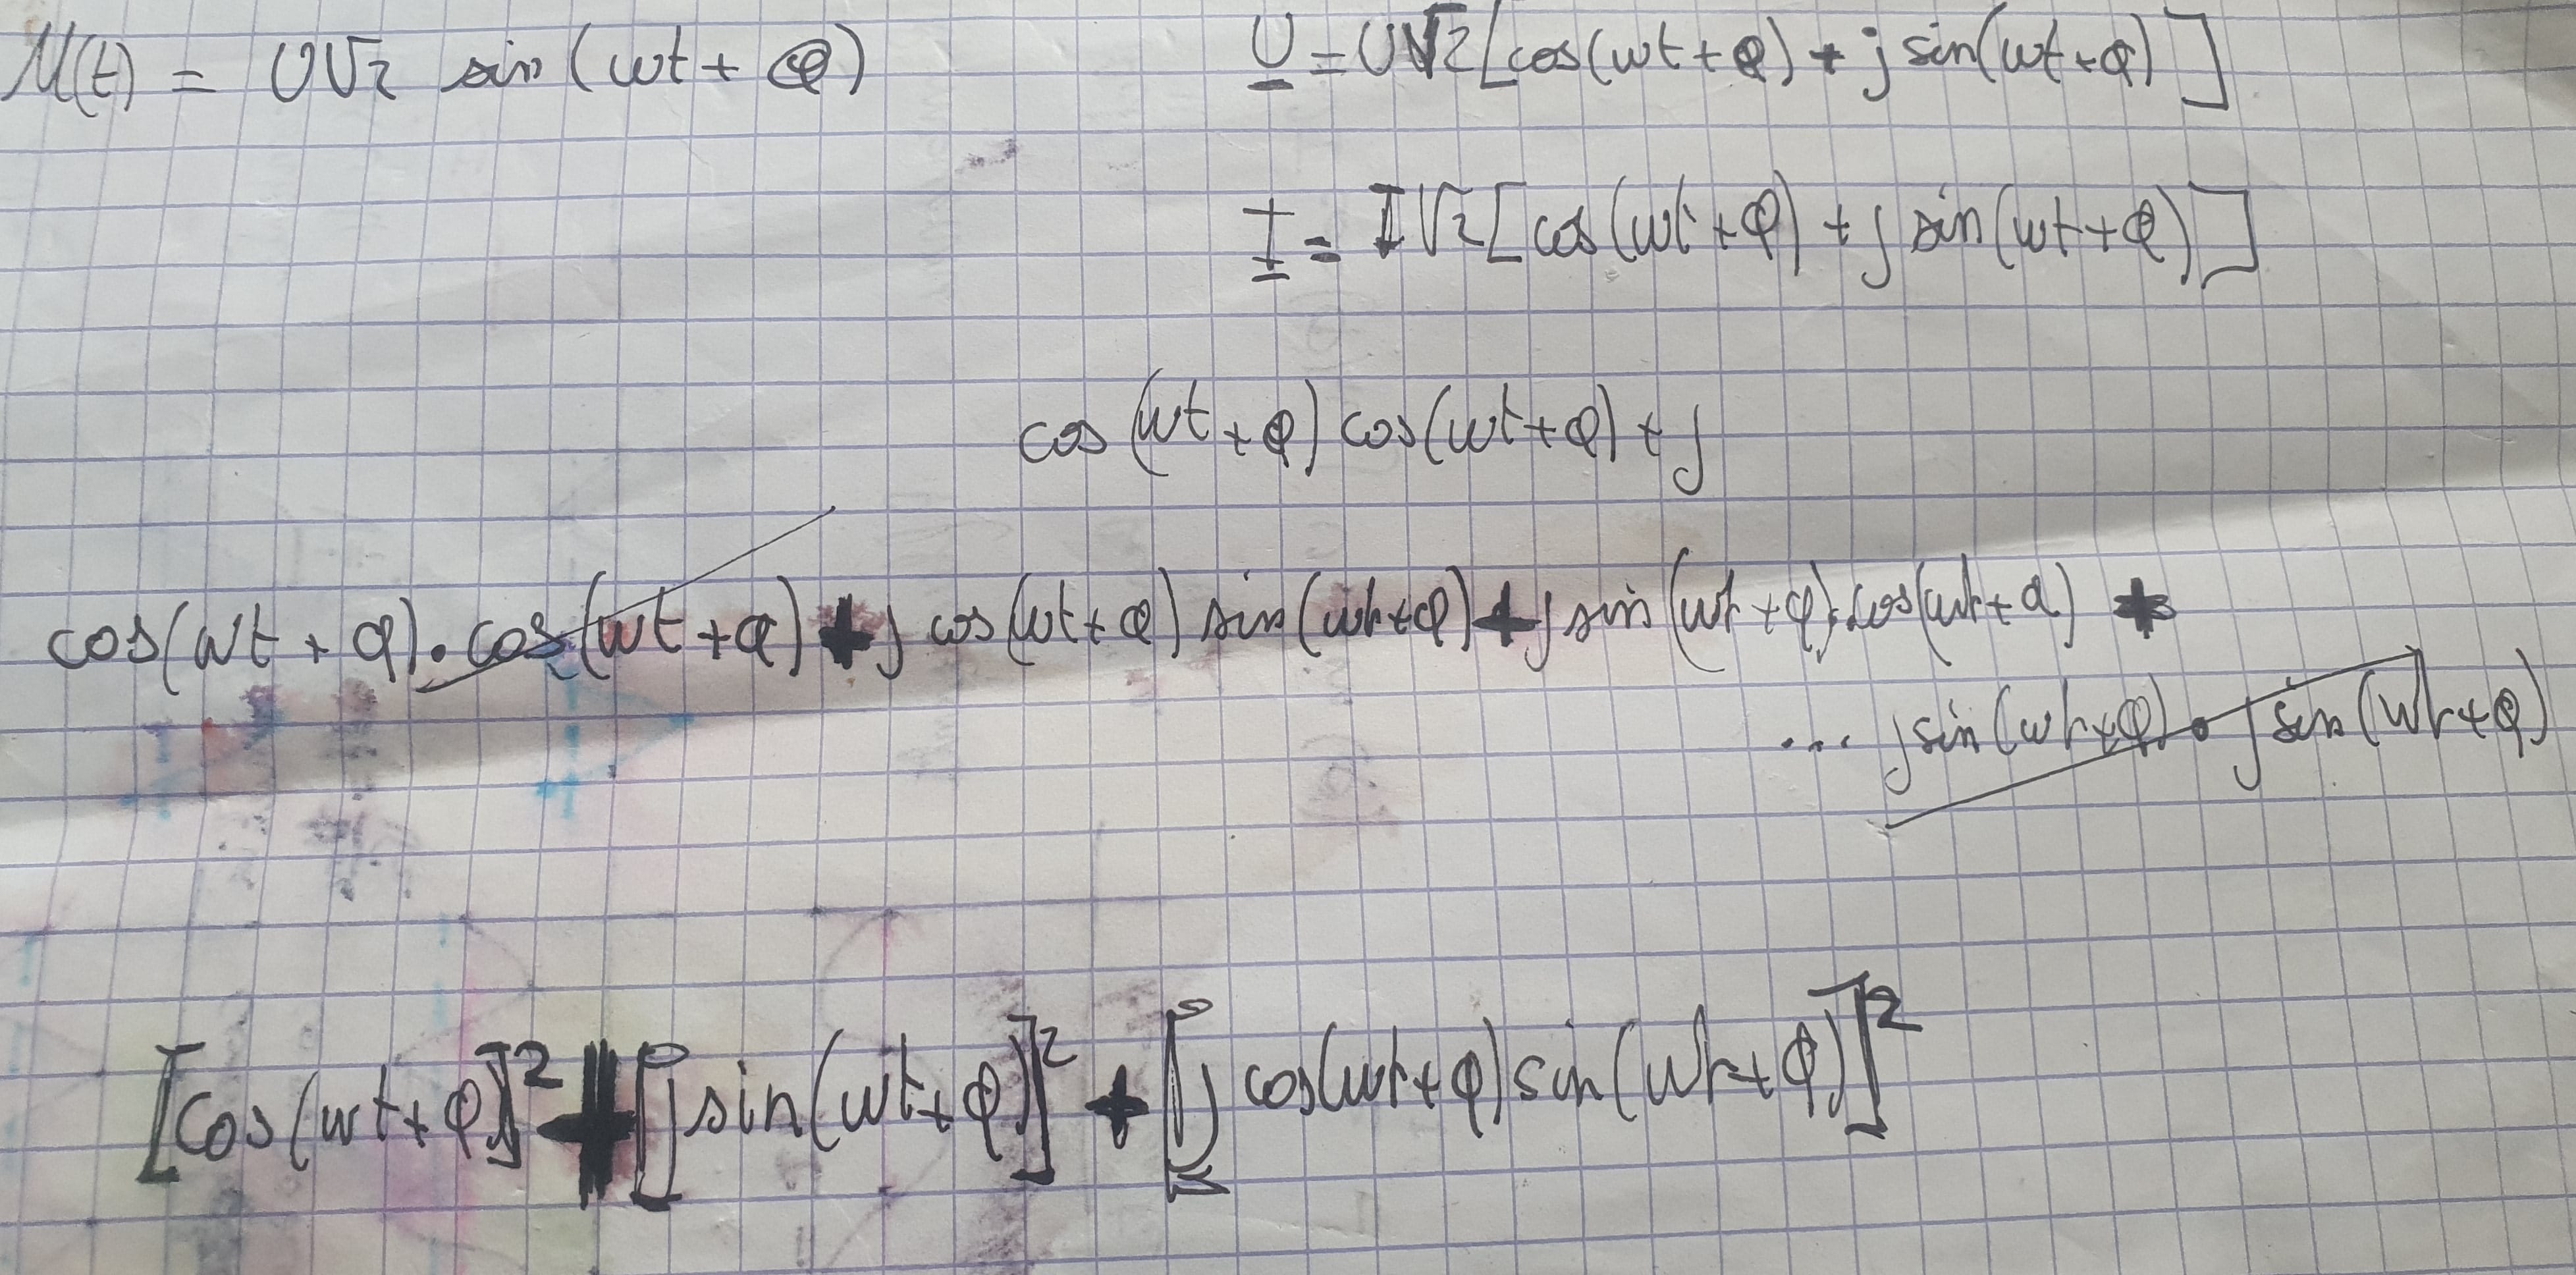 u(t) = U√2 sin(wt + φ)
U = U√2 [cos(wt + φ) + j sin(wt + φ)]
I = I√2 [cos(wt + φ) + j sin(wt + φ)]
cos(wt + φ) cos(wt + φ) + j
cos(wt + φ) . cos(wt + φ) + j cos(wt + φ) sin(wt + φ) + j sin(wt + φ) . cos(wt + φ) +
... j sin(wt + φ) . j sin(wt + φ)
[cos(wt + φ)]² + [j sin(wt + φ)]² + [j cos(wt + φ) sin(wt + φ)]²